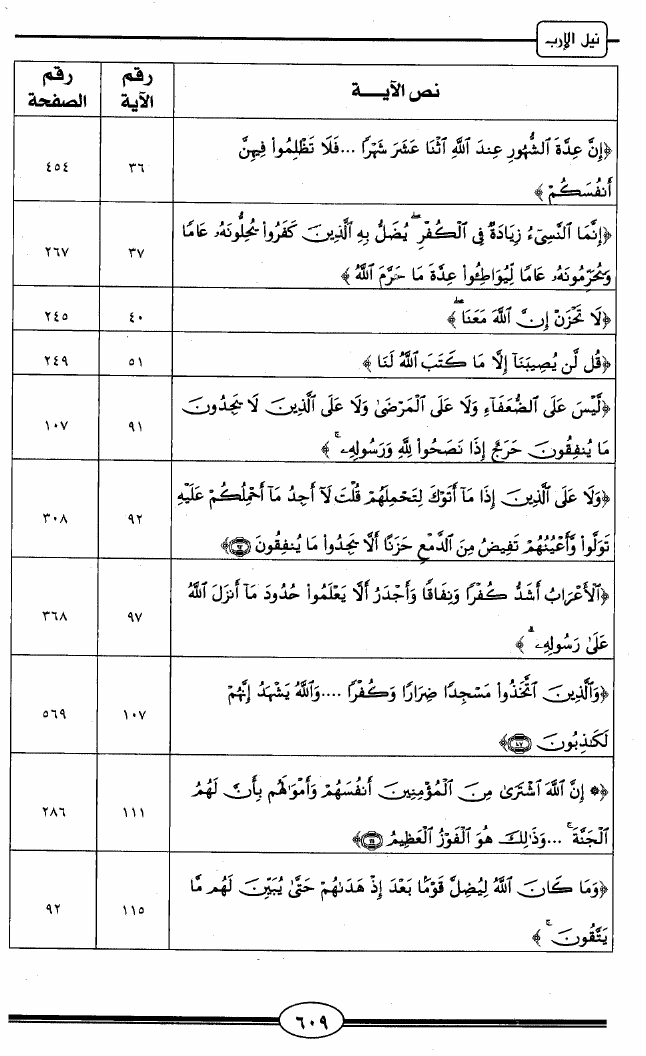 نيل الأرب
نص الآيـــة رقم الآية رقم الصفحة
﴿إِنَّ عِدَّةَ ٱلشُّهُورِ عِندَ ٱللَّهِ ٱثْنَا عَشَرَ شَهْرًا ...فَلَا تَظْلِمُوا۟ فِيهِنَّ
أَنفُسَكُمْ ﴾ ٣٦ ٤٥٤
﴿إِنَّمَا ٱلنَّسِىٓءُ زِيَادَةٌ فِى ٱلْكُفْرِ ۖ يُضَلُّ بِهِ ٱلَّذِينَ كَفَرُوا۟ يُحِلُّونَهُۥ عَامًا
وَيُحَرِّمُونَهُۥ عَامًا لِّيُوَاطِـُٔوا۟ عِدَّةَ مَا حَرَّمَ ٱللَّهُ ﴾ ٣٧ ٢٦٧
﴿لَا تَحْزَنْ إِنَّ ٱللَّهَ مَعَنَا ۖ ﴾ ٤٠ ٢٤٥
﴿قُل لَّن يُصِيبَنَآ إِلَّا مَا كَتَبَ ٱللَّهُ لَنَا ﴾ ٥١ ٢٤٩
﴿لَّيْسَ عَلَى ٱلضُّعَفَآءِ وَلَا عَلَى ٱلْمَرْضَىٰ وَلَا عَلَى ٱلَّذِينَ لَا يَجِدُونَ
مَا يُنفِقُونَ حَرَجٌ إِذَا نَصَحُوا۟ لِلَّهِ وَرَسُولِهِۦ ۚ ﴾ ٩١ ١٠٧
﴿وَلَا عَلَى ٱلَّذِينَ إِذَا مَآ أَتَوْكَ لِتَحْمِلَهُمْ قُلْتَ لَآ أَجِدُ مَآ أَحْمِلُكُمْ عَلَيْهِ
تَوَلَّوا۟ وَّأَعْيُنُهُمْ تَفِيضُ مِنَ ٱلدَّمْعِ حَزَنًا أَلَّا يَجِدُوا۟ مَا يُنفِقُونَ ﴾ ٩٢ ٣٠٨
﴿ٱلْأَعْرَابُ أَشَدُّ كُفْرًا وَنِفَاقًا وَأَجْدَرُ أَلَّا يَعْلَمُوا۟ حُدُودَ مَآ أَنزَلَ ٱللَّهُ
عَلَىٰ رَسُولِهِۦ ۗ ﴾ ٩٧ ٣٦٨
﴿وَٱلَّذِينَ ٱتَّخَذُوا۟ مَسْجِدًا ضِرَارًا وَكُفْرًا ....وَٱللَّهُ يَشْهَدُ إِنَّهُمْ
لَكَـٰذِبُونَ ﴾ ١٠٧ ٥٦٩
﴿۞ إِنَّ ٱللَّهَ ٱشْتَرَىٰ مِنَ ٱلْمُؤْمِنِينَ أَنفُسَهُمْ وَأَمْوَٰلَهُم بِأَنَّ لَهُمُ
ٱلْجَنَّةَ ۚ ...وَذَٰلِكَ هُوَ ٱلْفَوْزُ ٱلْعَظِيمُ ﴾ ١١١ ٢٨٦
﴿وَمَا كَانَ ٱللَّهُ لِيُضِلَّ قَوْمًۢا بَعْدَ إِذْ هَدَىٰهُمْ حَتَّىٰ يُبَيِّنَ لَهُم مَّا
يَتَّقُونَ ۚ ﴾ ١١٥ ٩٢
٦٠٩